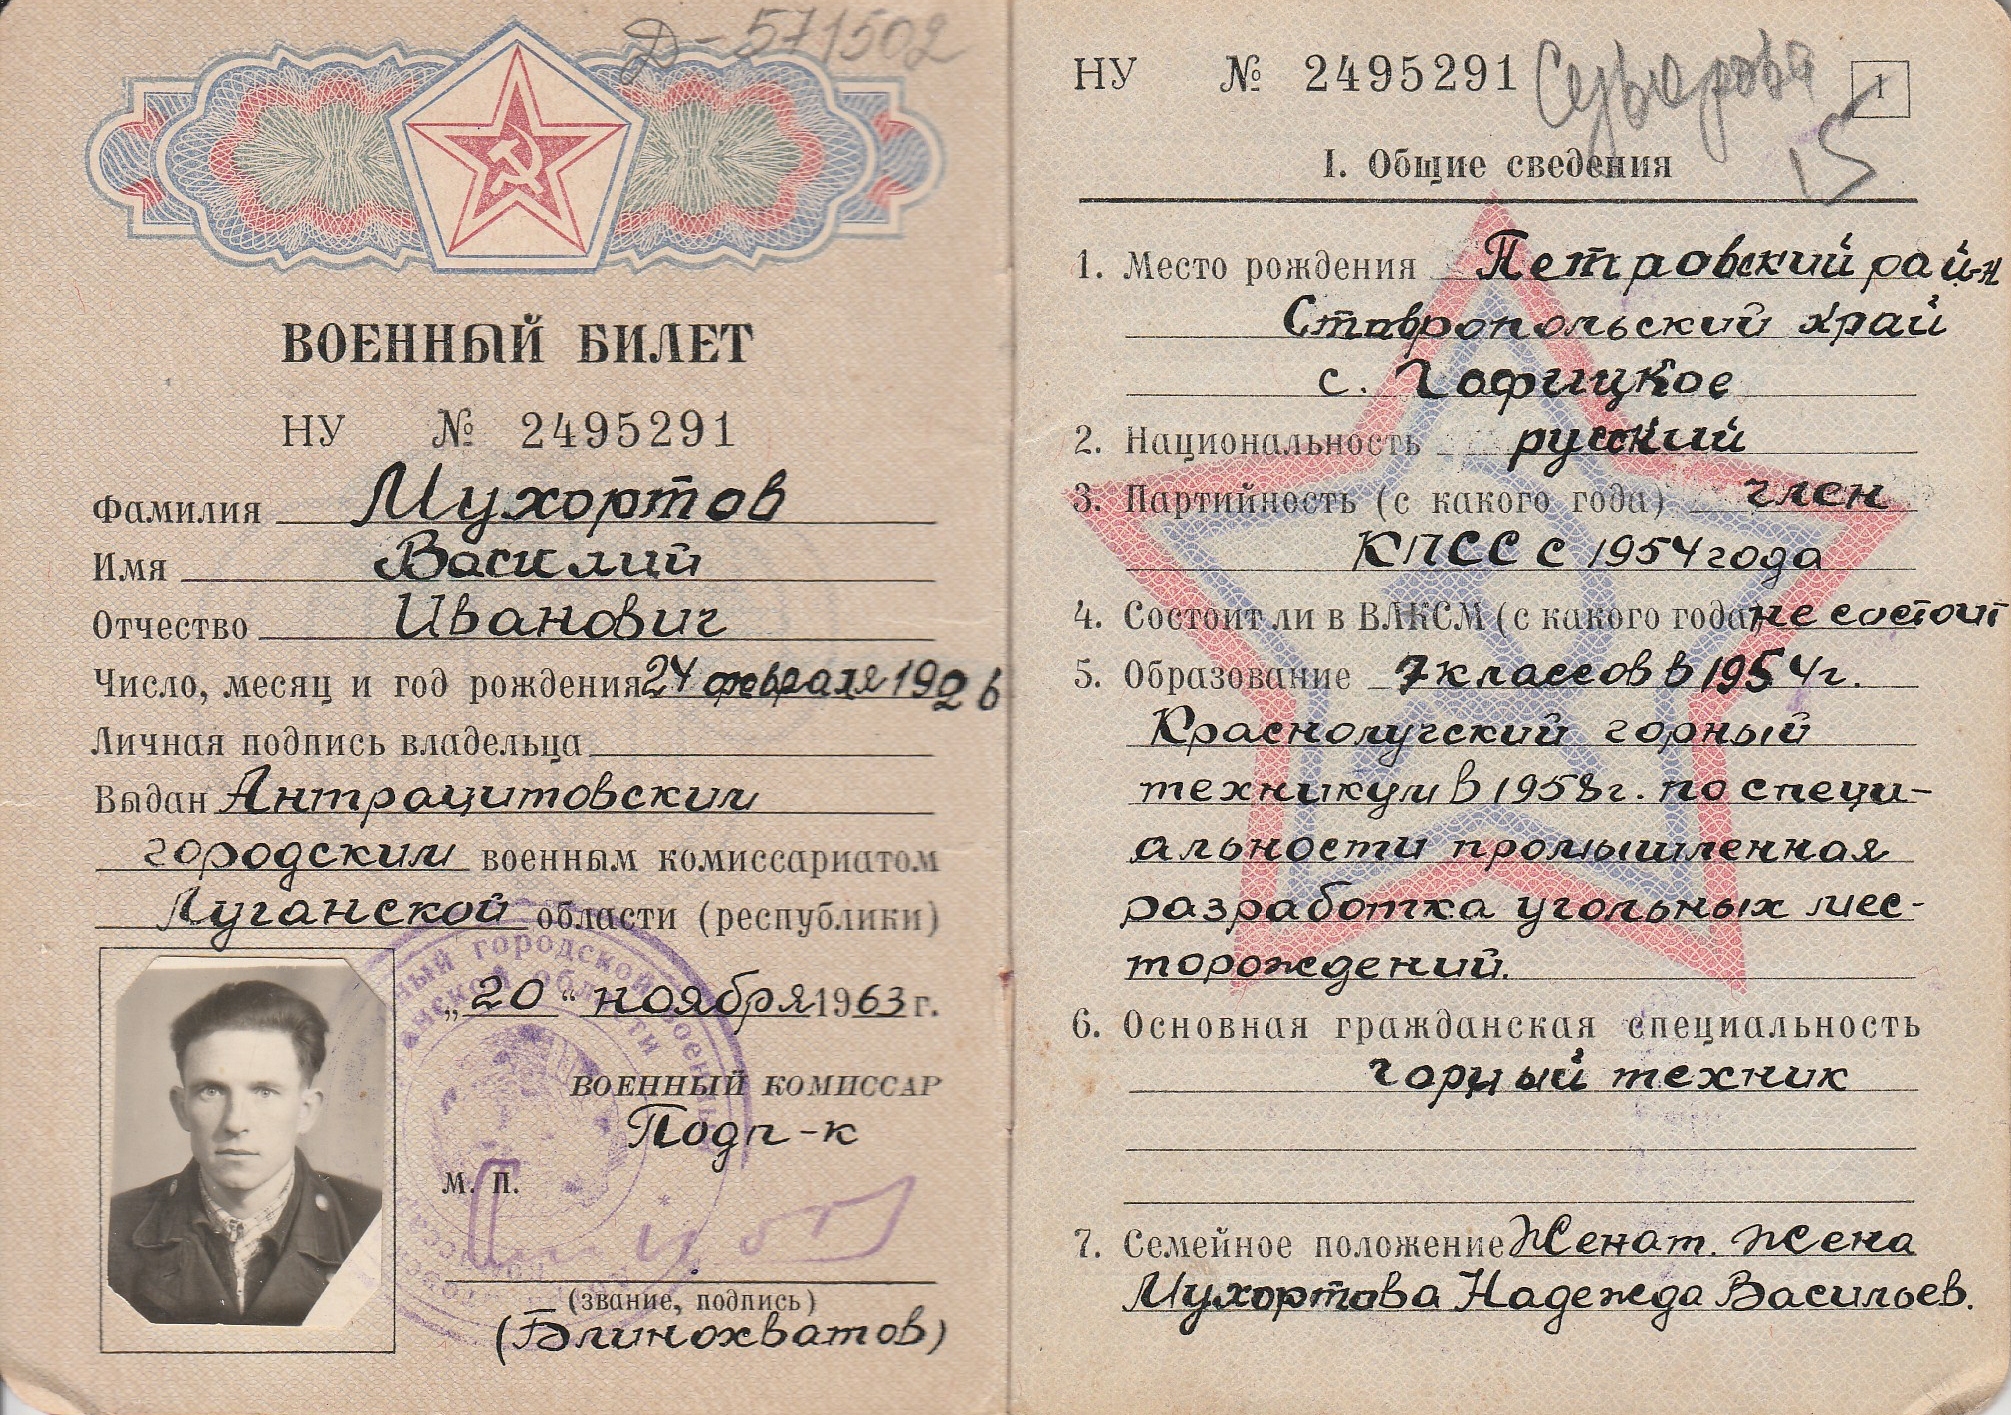 Д-571502
ВОЕННЫЙ БИЛЕТ
НУ № 2495291
Фамилия Мухортов
Имя Василий
Отчество Иванович
Число, месяц и год рождения 24 февраля 1926
Личная подпись владельца
Выдан Антрацитовским
городским военным комиссариатом
Луганской области (республики)
„20“ ноября 1963 г.
ВОЕННЫЙ КОМИССАР
Подп-к
М. П.
(звание, подпись)
(Блинохватов)
НУ № 2495291
Суварова
1
15
I. Общие сведения
1. Место рождения Петровский рай-н
Ставропольский край
с. Гофицкое
2. Национальность русский
3. Партийность (с какого года) член
КПСС с 1954 года
4. Состоит ли в ВЛКСМ (с какого года) не состоит
5. Образование 7 классов в 1954 г.
Краснолучский горный
техникум в 1958 г. по специ-
альности промышленная
разработка угольных мес-
торождений.
6. Основная гражданская специальность
горный техник
7. Семейное положение Женат. Жена
Мухортова Надежда Васильев.